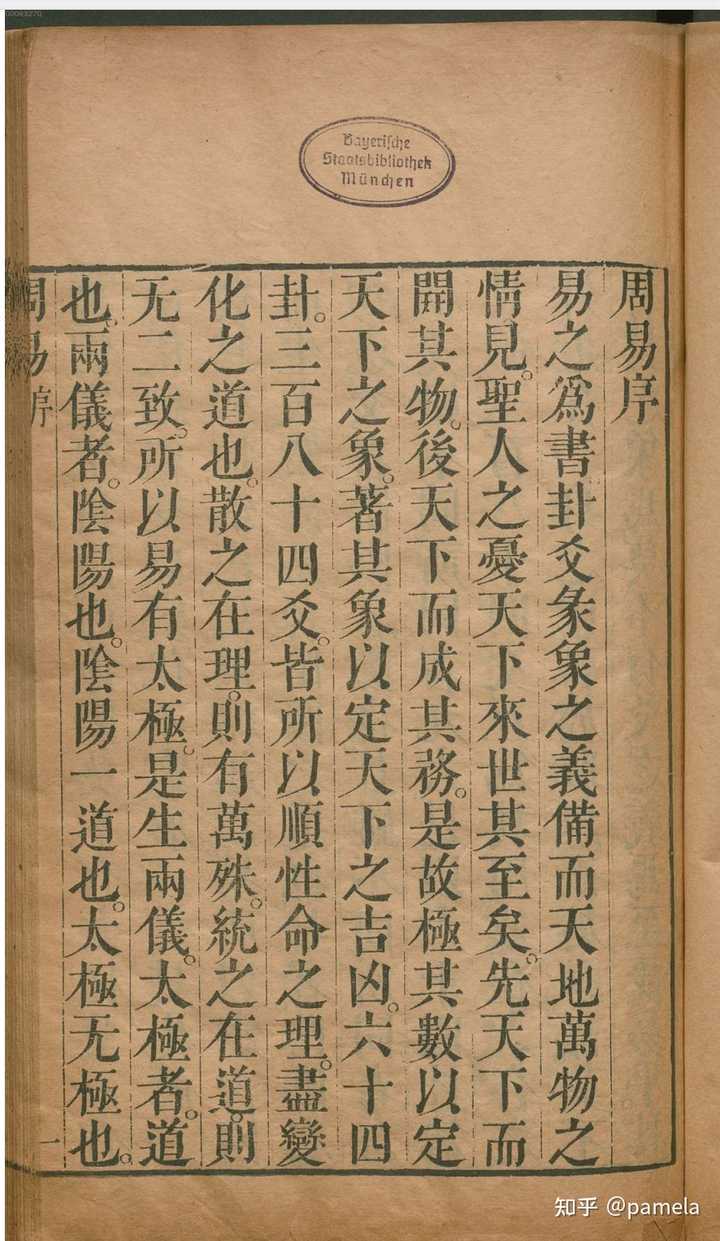 Bayerische
Staatsbibliothek
München
周易序
易之爲書卦爻彖象之義備而天地萬物之
情見。聖人之憂天下來世其至矣。先天下而
開其物。後天下而成其務。是故極其數以定
天下之象。著其象以定天下之吉凶。六十四
卦。三百八十四爻。皆所以順性命之理。盡變
化之道也。散之在理。則有萬殊。統之在道。則
无二致。所以易有太極。是生兩儀。太極者。道
也。兩儀者。陰陽也。陰陽一道也。太極无極也。
周易序
一
知乎 @pamela